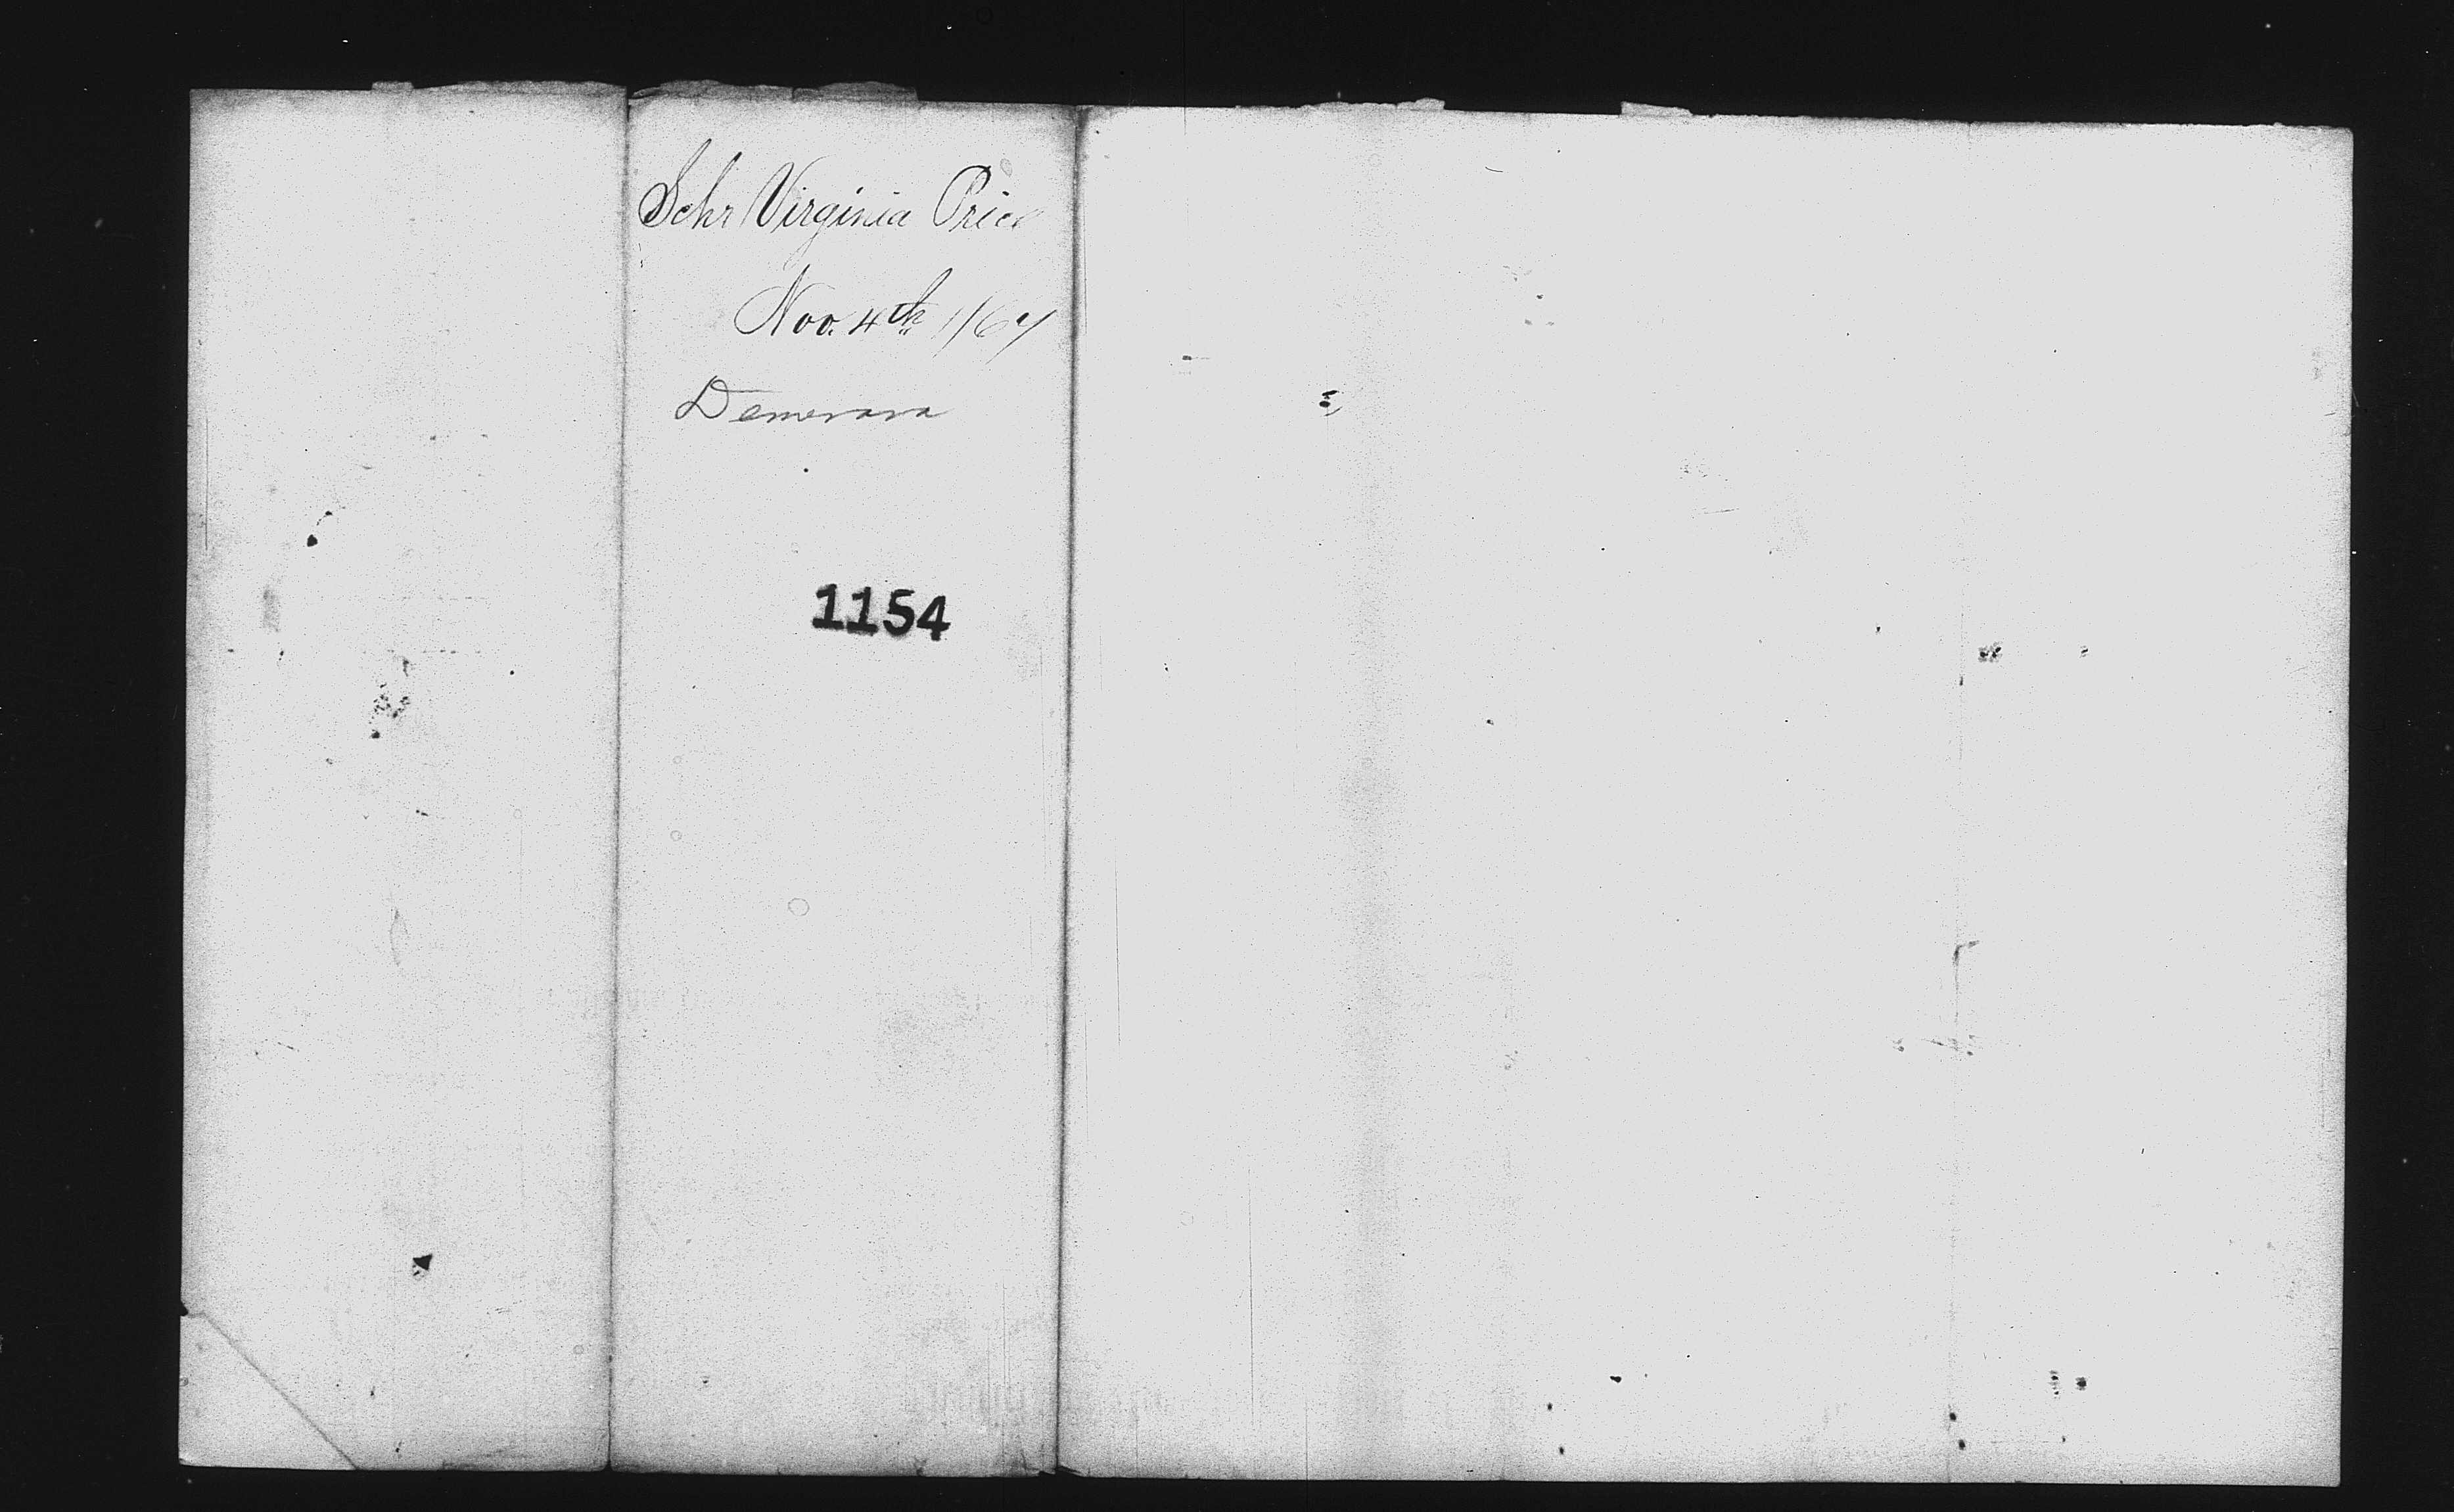 Schr Virginia Price
Nov. 4th /67
Demerara
1154